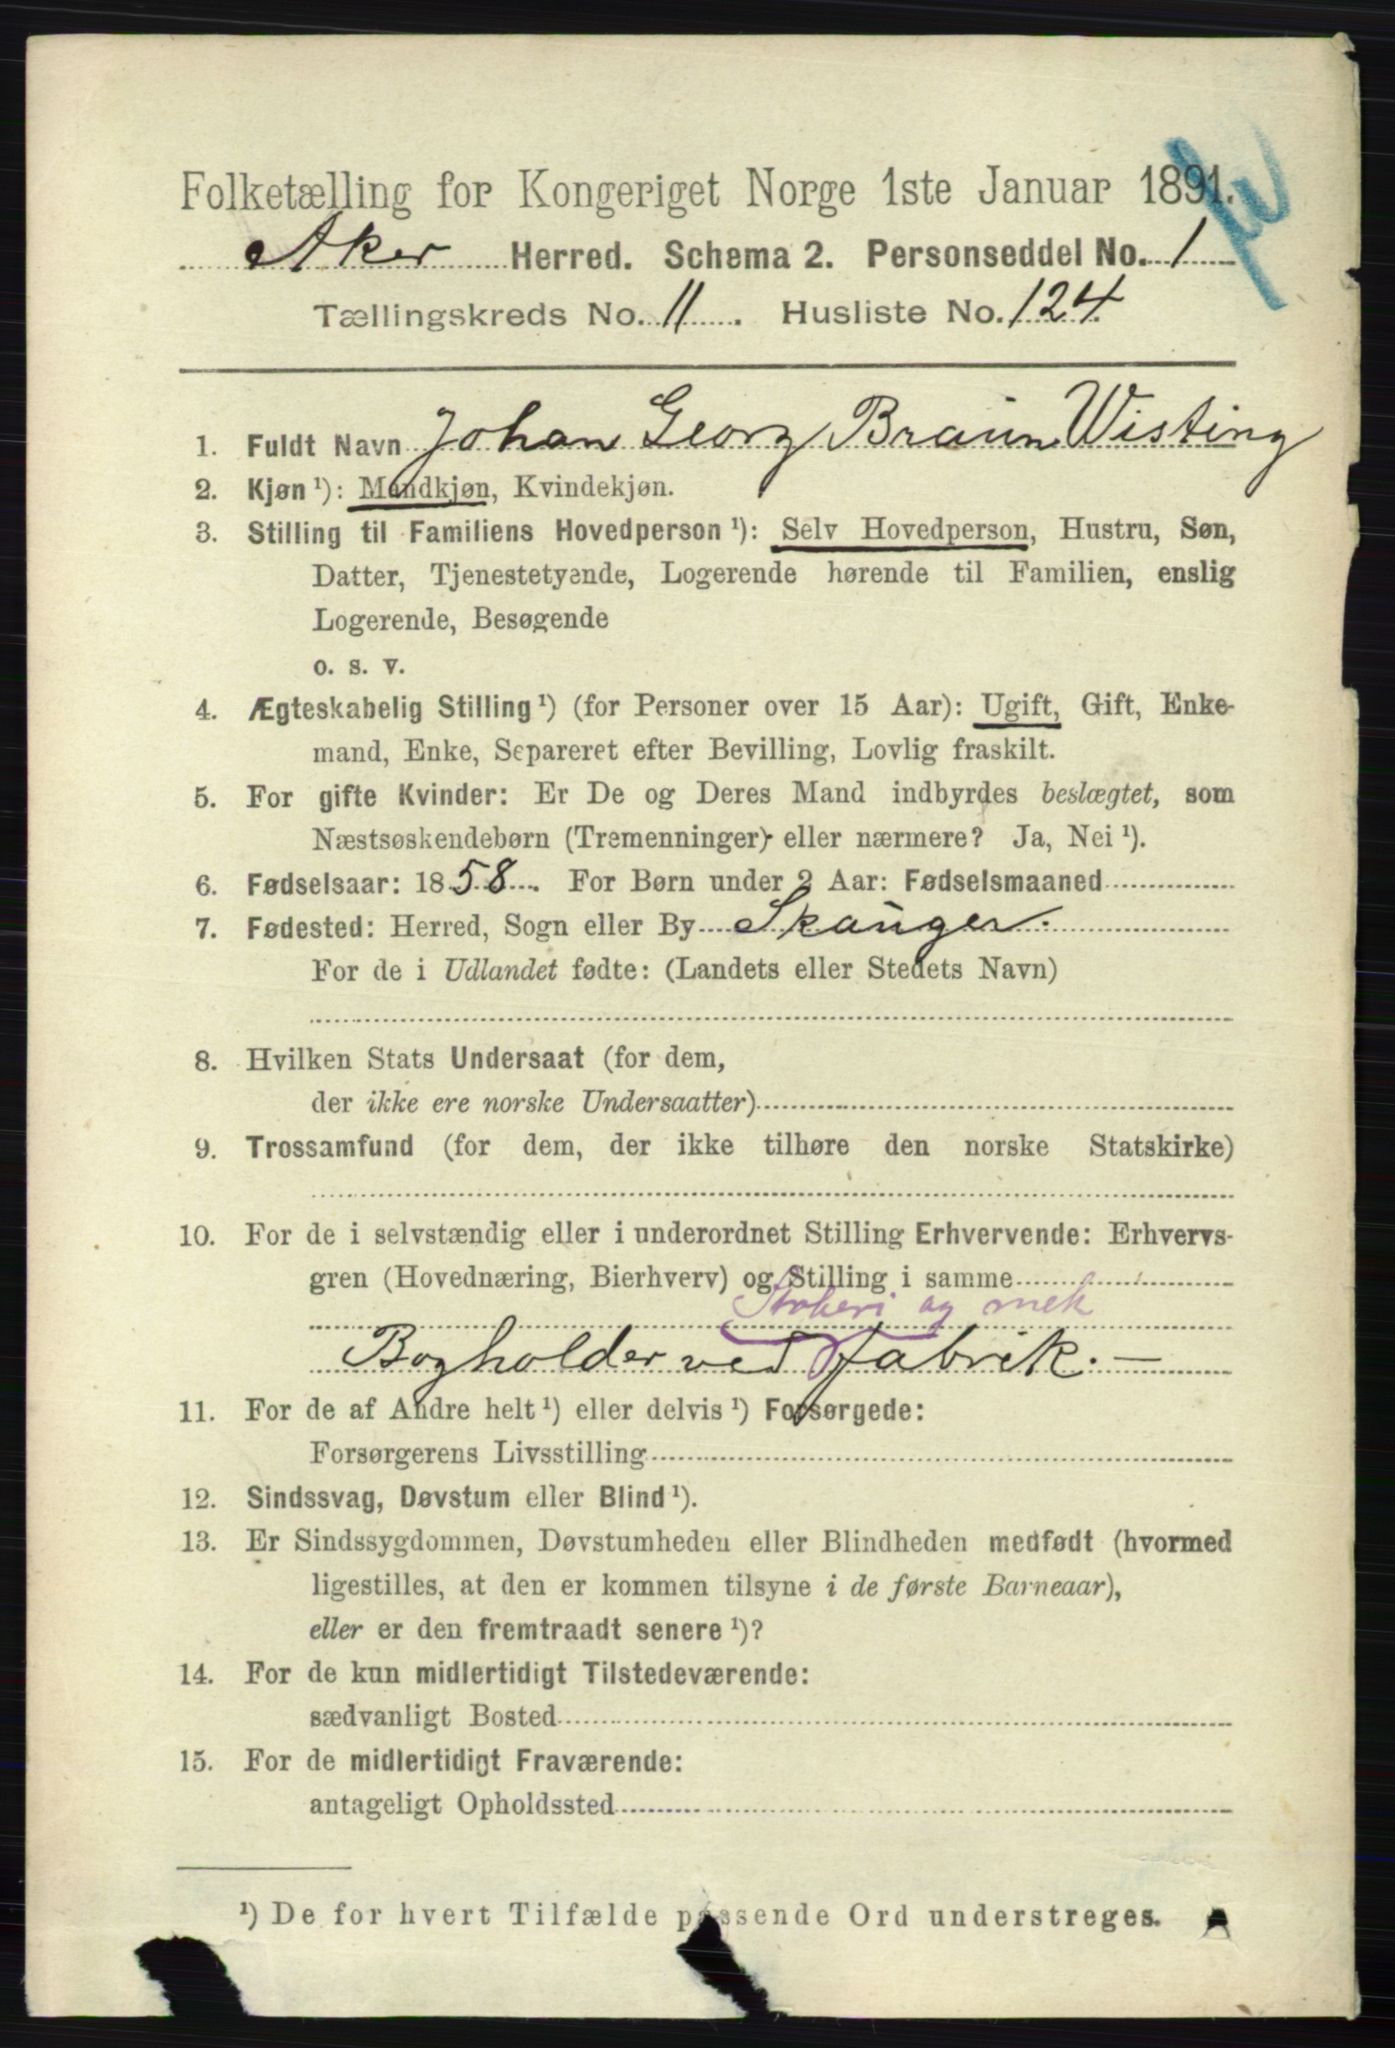 Folketælling for Kongeriget Norge 1ste Januar 1891.
Aker Herred. Schema 2. Personseddel No. 1
Tællingskreds No. 11. Husliste No. 124
1. Fuldt Navn Johan Georg Braun Wisting
2. Kjøn ¹): Mandkjøn, Kvindekjøn.
3. Stilling til Familiens Hovedperson ¹): Selv Hovedperson, Hustru, Søn,
Datter, Tjenestetyende, Logerende hørende til Familien, enslig
Logerende, Besøgende
o. s. v.
4. Ægteskabelig Stilling ¹) (for Personer over 15 Aar): Ugift, Gift, Enke-
mand, Enke, Separeret efter Bevilling, Lovlig fraskilt.
5. For gifte Kvinder: Er De og Deres Mand indbyrdes beslægtet, som
Næstsøskendebørn (Tremenninger) eller nærmere? Ja, Nei ¹).
6. Fødselsaar: 1858. For Børn under 2 Aar: Fødselsmaaned
7. Fødested: Herred, Sogn eller By Skauger.
For de i Udlandet fødte: (Landets eller Stedets Navn)
8. Hvilken Stats Undersaat (for dem,
der ikke ere norske Undersaatter)
9. Trossamfund (for dem, der ikke tilhøre den norske Statskirke)
10. For de i selvstændig eller i underordnet Stilling Erhvervende: Erhvervs-
gren (Hovednæring, Bierhverv) og Stilling i samme
Støberi og mek
Bogholder ved fabrik. —
11. For de af Andre helt ¹) eller delvis ¹) Forsørgede:
Forsørgerens Livsstilling
12. Sindssvag, Døvstum eller Blind ¹).
13. Er Sindssygdommen, Døvstumheden eller Blindheden medfødt (hvormed
ligestilles, at den er kommen tilsyne i de første Barneaar),
eller er den fremtraadt senere ¹)?
14. For de kun midlertidigt Tilstedeværende:
sædvanligt Bosted
15. For de midlertidigt Fraværende:
antageligt Opholdssted
¹) De for hvert Tilfælde passende Ord understreges.